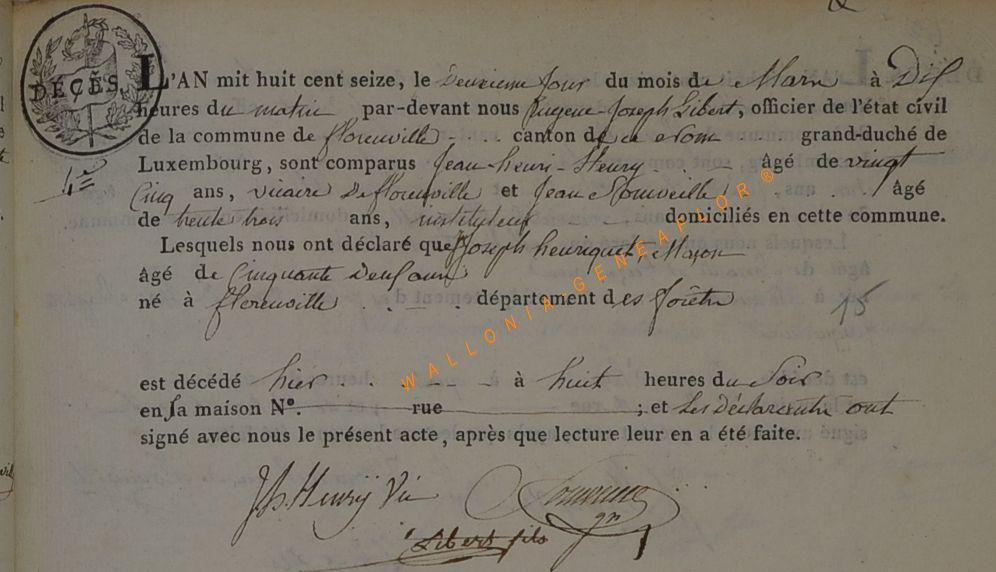 DÉCÈS.
L'AN mit huit cent seize, le Deuxieme Jour du mois de Mars à Dix
heures du matin par-devant nous Eugene-Joseph Libert, officier de l'état civil
de la commune de florenville canton de ce nom grand-duché de
Luxembourg, sont comparus Jean-henri-Henry âgé de vingt
Cinq ans, vicaire De florenville et Jean âgé
de trente trois ans, instituteur domiciliés en cette commune.
Lesquels nous ont déclaré que Joseph henriquet, Maçon
âgé de Cinquante Deux ans
né à florenville département des forêts
15
est décédé hier à huit heures du Soir
en sa maison N°. rue ; et Les Déclarants ont
signé avec nous le présent acte, après que lecture leur en a été faite.
J.h. Henry Vic
Libert fils
WALLONIA GENEAFLOR ®